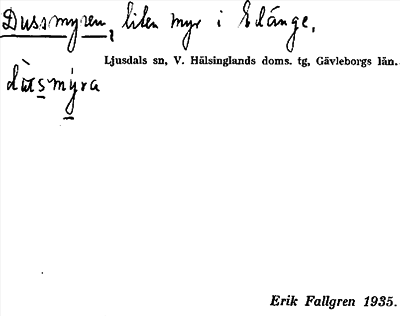 Dussmyren, liten myr i Edånge.
Ljusdals sn, V. Hälsinglands doms. tg, Gävleborgs län.
Erik Fallgren 1935.